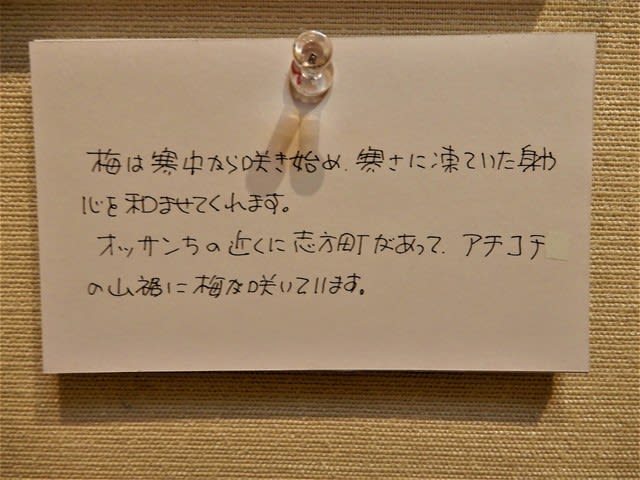 梅は寒中から咲き始め、寒さに凍ていた身や
心を和ませてくれます。
オッサンちの近くに志方町があって、アチコチ
の山裾に梅が咲いています。